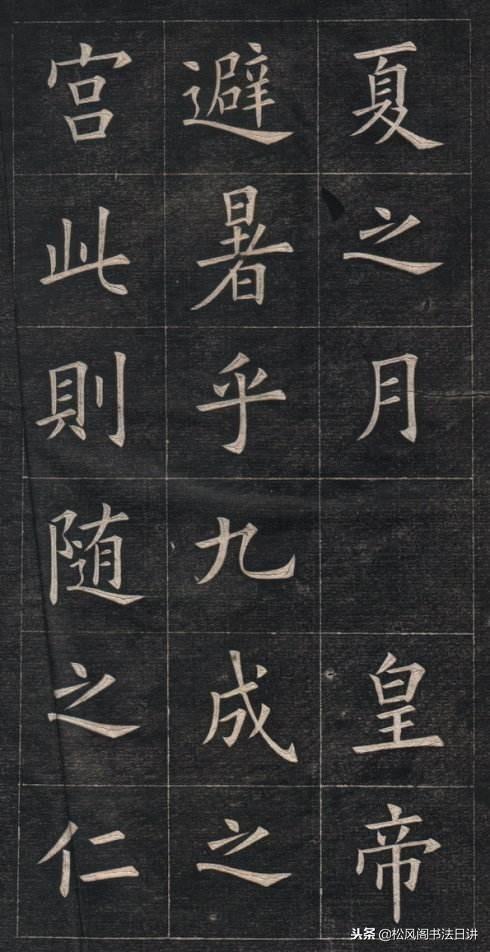 夏之月 皇帝
避暑乎九成之
宫此則随之仁
头条 @松风阁书法日讲